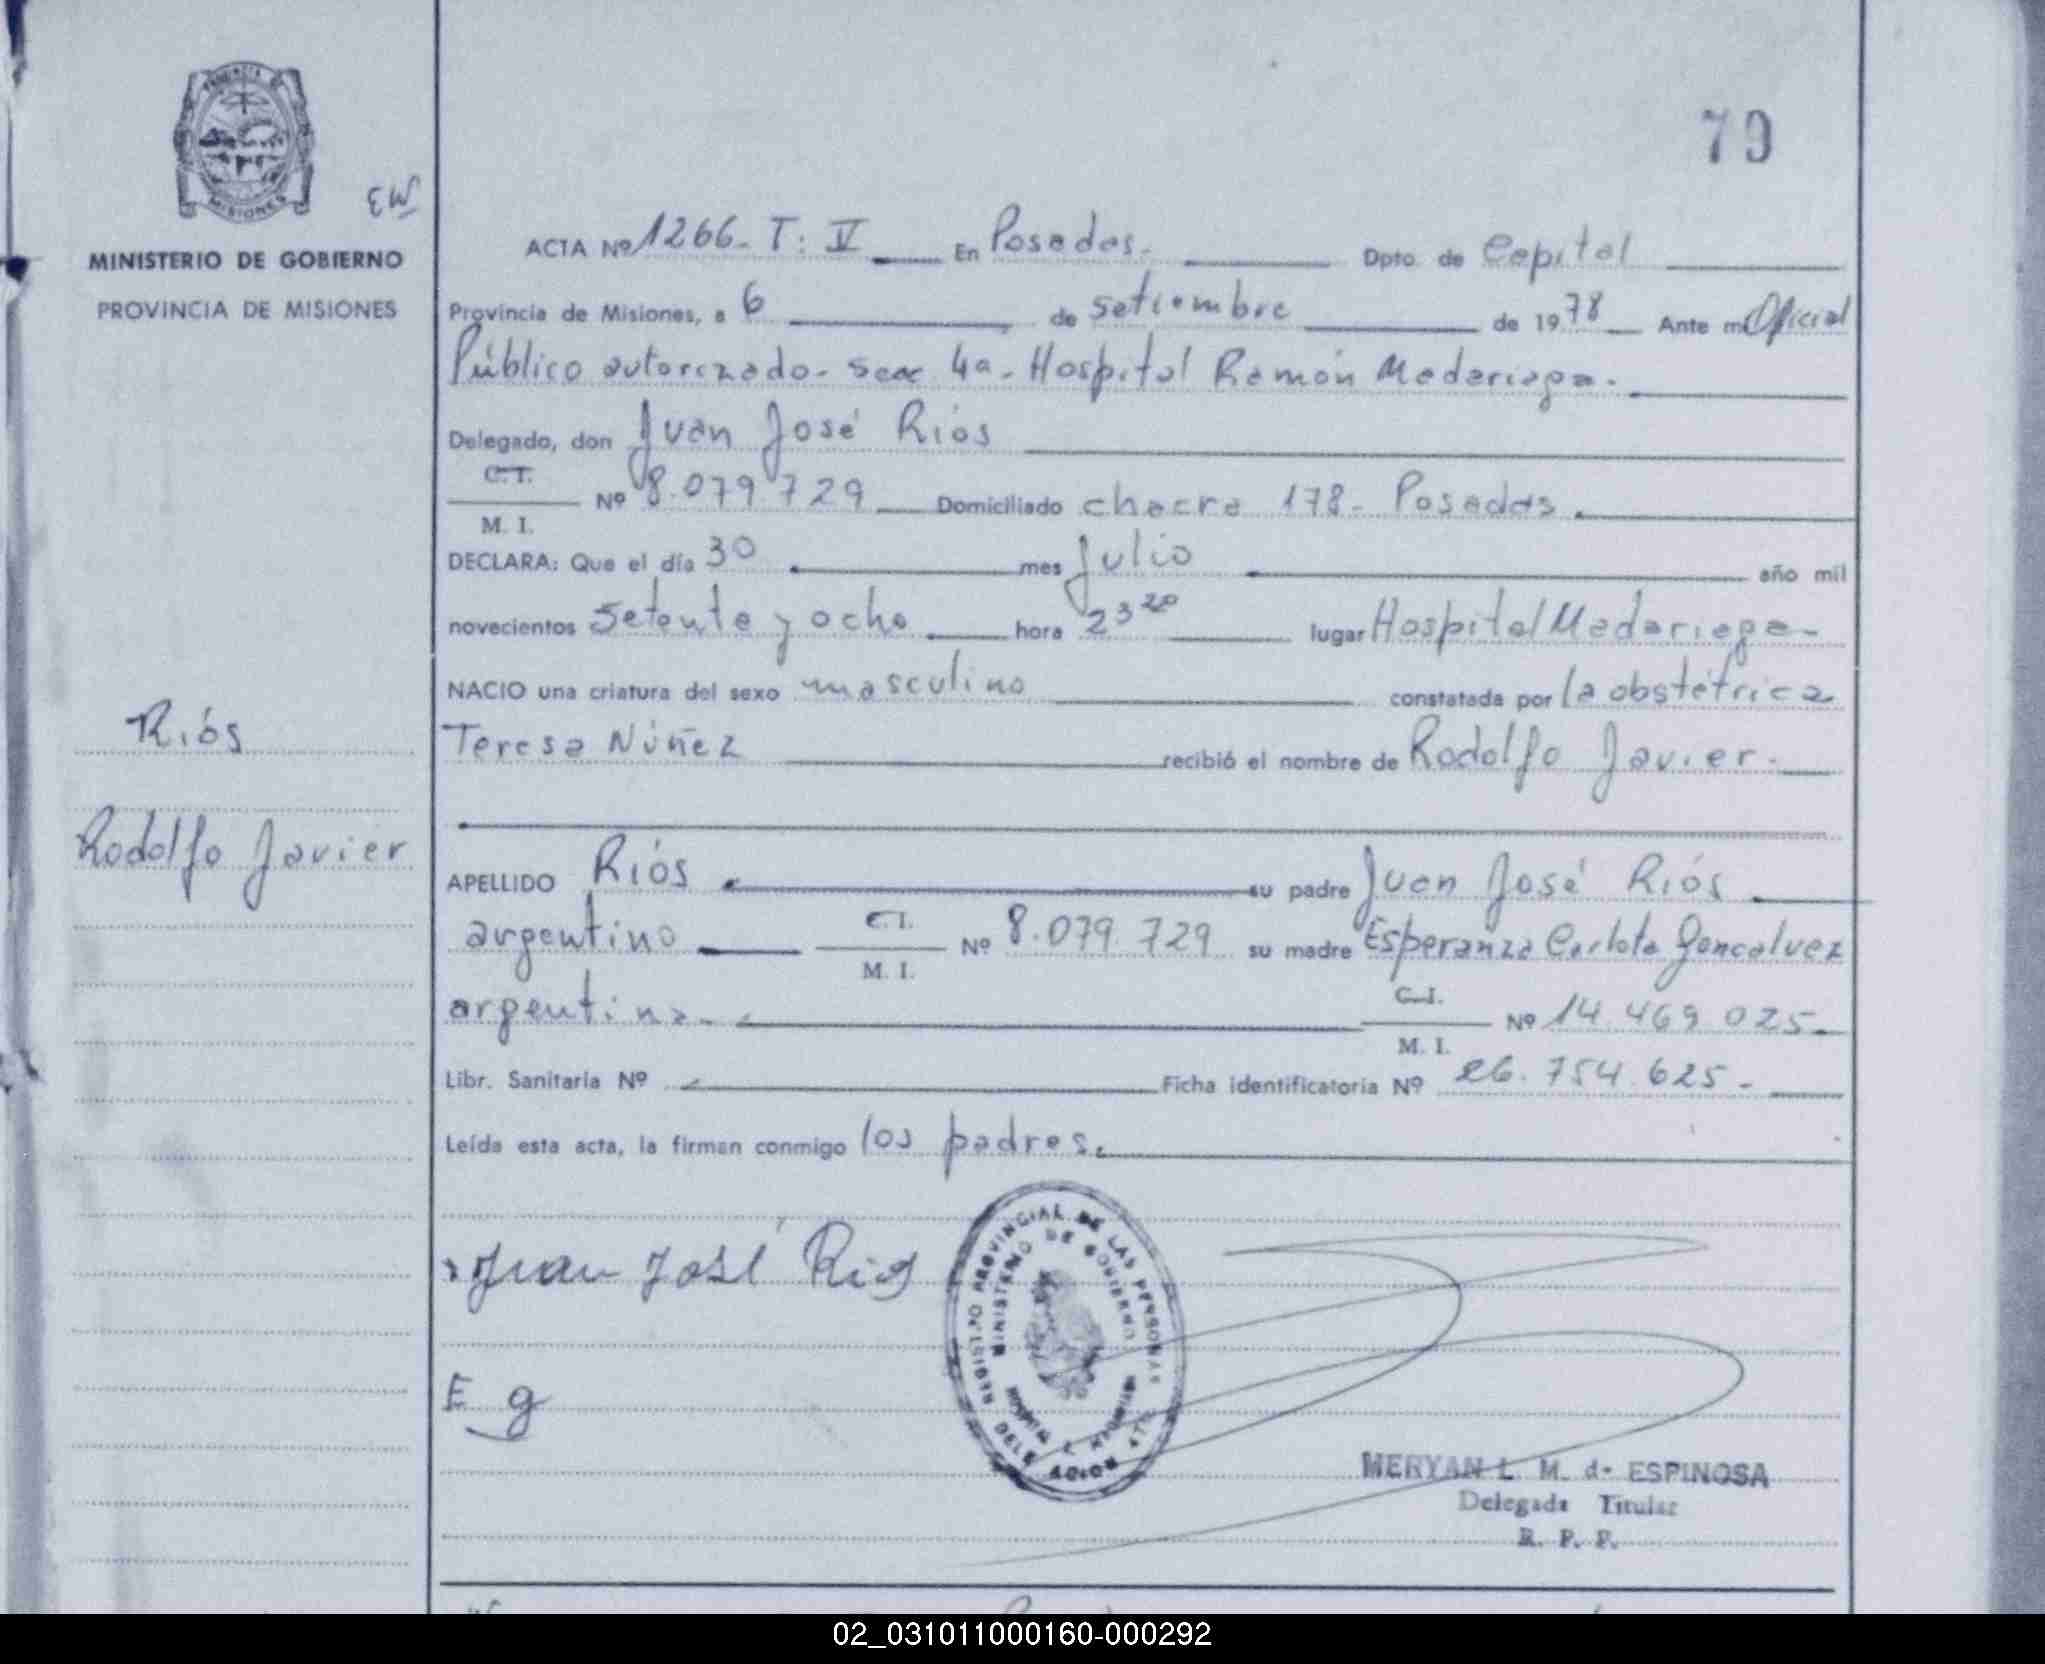 79
PROVINCIA DE
MISIONES
MINISTERIO DE GOBIERNO
PROVINCIA DE MISIONES
ACTA Nº 1266- T: V En Posadas. Dpto. de Capital
Provincia de Misiones, a 6 de setiembre de 1978 Ante mí Oficial
Público autorizado- Secc 4a- Hospital Ramón Madariaga.
Delegado, don Juan José Riós
C.I.
Nº 8.079729 Domiciliado chacra 178- Posadas.
M. I.
DECLARA: Que el día 30 mes Julio año mil
novecientos setenta y ocho hora 23 20 lugar Hospital Madariaga-
NACIO una criatura del sexo masculino constatada por la obstétrica
Teresa Núñez recibió el nombre de Rodolfo Javier.
Riós
Rodolfo Javier
APELLIDO Riós su padre Juan José Riós
argentino C.I. Nº 8.079.729 su madre Esperanza Carlota Goncalvez
M. I.
argentina- C.I. Nº 14.469.025-
M. I.
Libr. Sanitaria Nº Ficha identificatoria Nº 26.754.625-
Leída esta acta, la firman conmigo los padres.
Juan José Rios
E g
REGISTRO PROVINCIAL DE LAS PERSONAS
MINISTERIO DE GOBIERNO
MERYAN L. M. de ESPINOSA
Delegada Titular
R. P. P.
02_031011000160-000292